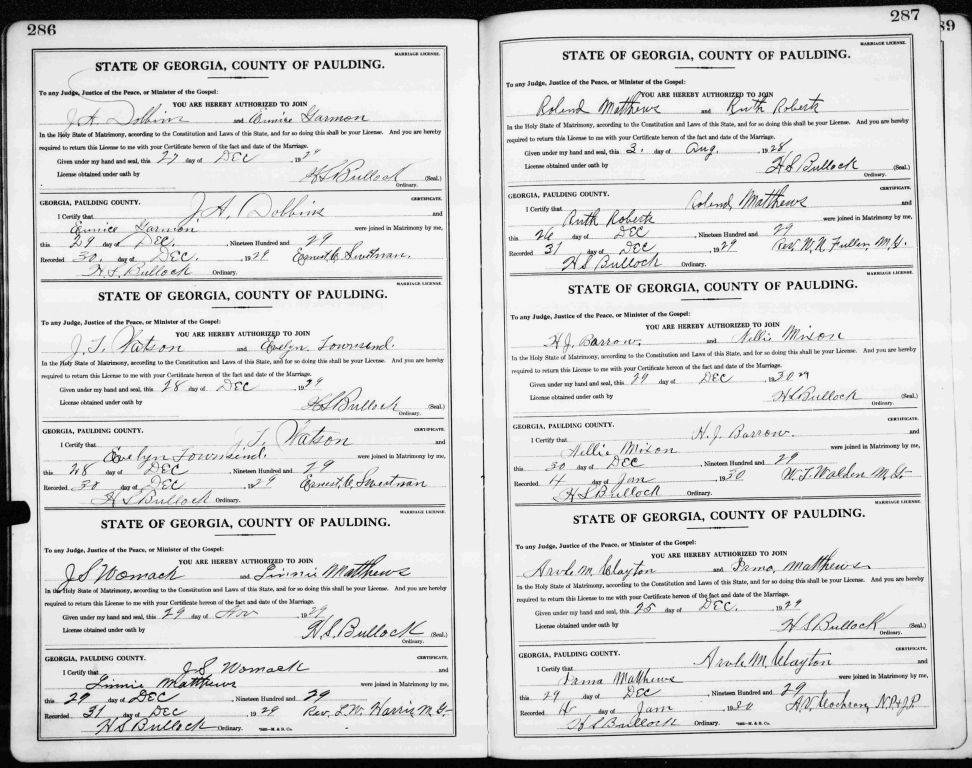 286
MARRIAGE LICENSE.
STATE OF GEORGIA, COUNTY OF PAULDING.
To any Judge, Justice of the Peace, or Minister of the Gospel:
YOU ARE HEREBY AUTHORIZED TO JOIN
J. A. Dobbins and Eunice Garmon
In the Holy State of Matrimony, according to the Constitution and Laws of this State, and for so doing this shall be your License. And you are hereby
required to return this License to me with your Certificate hereon of the fact and date of the Marriage.
Given under my hand and seal, this 27 day of DEC , 1929
License obtained under oath by H S Bullock (Seal.)
Ordinary.
GEORGIA, PAULDING COUNTY. CERTIFICATE.
I Certify that J. A. Dobbins and
Eunice Garmon were joined in Matrimony by me,
this 29 day of DEC. , Nineteen Hundred and 29
Recorded 30. day of DEC. , 1929 Ernest C. Swetman.
H. S. Bullock Ordinary.
MARRIAGE LICENSE.
STATE OF GEORGIA, COUNTY OF PAULDING.
To any Judge, Justice of the Peace, or Minister of the Gospel:
YOU ARE HEREBY AUTHORIZED TO JOIN
J. T. Watson and Evelyn Townsend.
In the Holy State of Matrimony, according to the Constitution and Laws of this State, and for so doing this shall be your License. And you are hereby
required to return this License to me with your Certificate hereon of the fact and date of the Marriage.
Given under my hand and seal, this 28 day of DEC , 1929
License obtained under oath by H S Bullock (Seal.)
Ordinary.
GEORGIA, PAULDING COUNTY. CERTIFICATE.
I Certify that J. T. Watson and
Evelyn Townsend. were joined in Matrimony by me,
this 28 day of DEC , Nineteen Hundred and 29
Recorded 30 day of DEC , 1929 Ernest C. Swetman
H S Bullock Ordinary.
MARRIAGE LICENSE.
STATE OF GEORGIA, COUNTY OF PAULDING.
To any Judge, Justice of the Peace, or Minister of the Gospel:
YOU ARE HEREBY AUTHORIZED TO JOIN
J S Womack and Linnie Matthews
In the Holy State of Matrimony, according to the Constitution and Laws of this State, and for so doing this shall be your License. And you are hereby
required to return this License to me with your Certificate hereon of the fact and date of the Marriage.
Given under my hand and seal, this 29 day of Nov , 1929
License obtained under oath by H. S. Bullock (Seal.)
Ordinary.
GEORGIA, PAULDING COUNTY. CERTIFICATE.
I Certify that J. S. Womack and
Linnie Matthews were joined in Matrimony by me,
this 29 day of DEC , Nineteen Hundred and 29
Recorded 31 day of DEC , 1929 Rev. L. W. Harris, M. G.
H S Bullock Ordinary.
287
MARRIAGE LICENSE.
STATE OF GEORGIA, COUNTY OF PAULDING.
To any Judge, Justice of the Peace, or Minister of the Gospel:
YOU ARE HEREBY AUTHORIZED TO JOIN
Roland Matthews and Ruth Roberts
In the Holy State of Matrimony, according to the Constitution and Laws of this State, and for so doing this shall be your License. And you are hereby
required to return this License to me with your Certificate hereon of the fact and date of the Marriage.
Given under my hand and seal, this 3. day of Aug. , 1928
License obtained under oath by H S Bullock (Seal.)
Ordinary.
GEORGIA, PAULDING COUNTY. CERTIFICATE.
I Certify that Roland Matthews and
Ruth Roberts were joined in Matrimony by me,
this 26 day of DEC , Nineteen Hundred and 29
Recorded 31 day of DEC , 1929 Rev. M. R. Fuller M. G.
H S Bullock Ordinary.
MARRIAGE LICENSE.
STATE OF GEORGIA, COUNTY OF PAULDING.
To any Judge, Justice of the Peace, or Minister of the Gospel:
YOU ARE HEREBY AUTHORIZED TO JOIN
H J. Barrow. and Nillie Mixon
In the Holy State of Matrimony, according to the Constitution and Laws of this State, and for so doing this shall be your License. And you are hereby
required to return this License to me with your Certificate hereon of the fact and date of the Marriage.
Given under my hand and seal, this 29 day of DEC , 1930 29
License obtained under oath by H S Bullock (Seal.)
Ordinary.
GEORGIA, PAULDING COUNTY. CERTIFICATE.
I Certify that H. J. Barrow. and
Nillie Mixon were joined in Matrimony by me,
this 30 day of DEC , Nineteen Hundred and 29
Recorded 4 day of Jan , 1930 W. T. Walden M. G.
H S Bullock Ordinary.
MARRIAGE LICENSE.
STATE OF GEORGIA, COUNTY OF PAULDING.
To any Judge, Justice of the Peace, or Minister of the Gospel:
YOU ARE HEREBY AUTHORIZED TO JOIN
Arvle M. Clayton and Irma, Matthews
In the Holy State of Matrimony, according to the Constitution and Laws of this State, and for so doing this shall be your License. And you are hereby
required to return this License to me with your Certificate hereon of the fact and date of the Marriage.
Given under my hand and seal, this 25 day of DEC. , 1929
License obtained under oath by H S Bullock (Seal.)
Ordinary.
GEORGIA, PAULDING COUNTY. CERTIFICATE.
I Certify that Arvle M. Clayton and
Irma Matthews were joined in Matrimony by me,
this 29 day of DEC , Nineteen Hundred and 29
Recorded 4 day of Jan , 1930 A. V. Cochran, N. P. & J. P.
H S Bullock Ordinary.
89